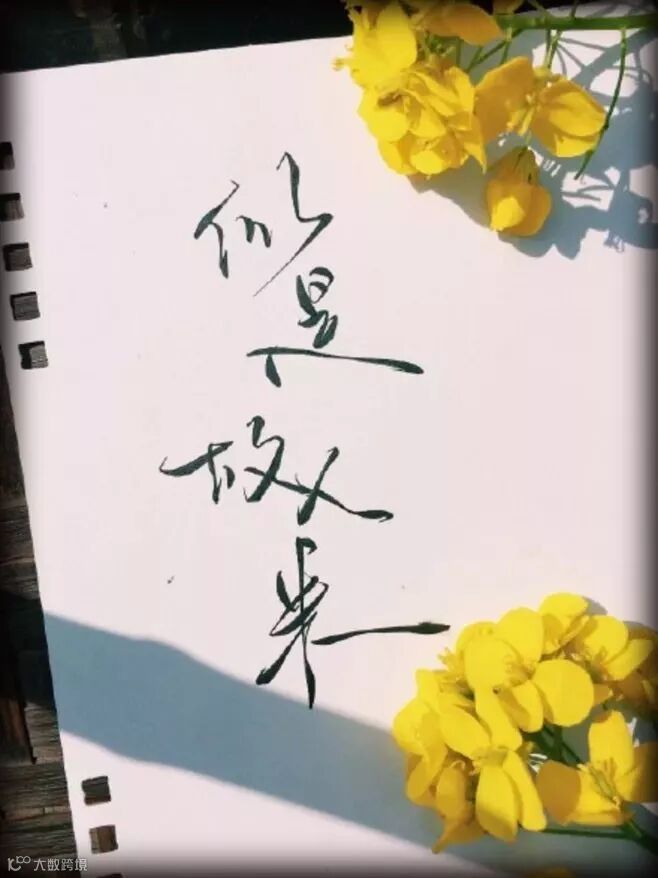 似是故人来
大数跨境